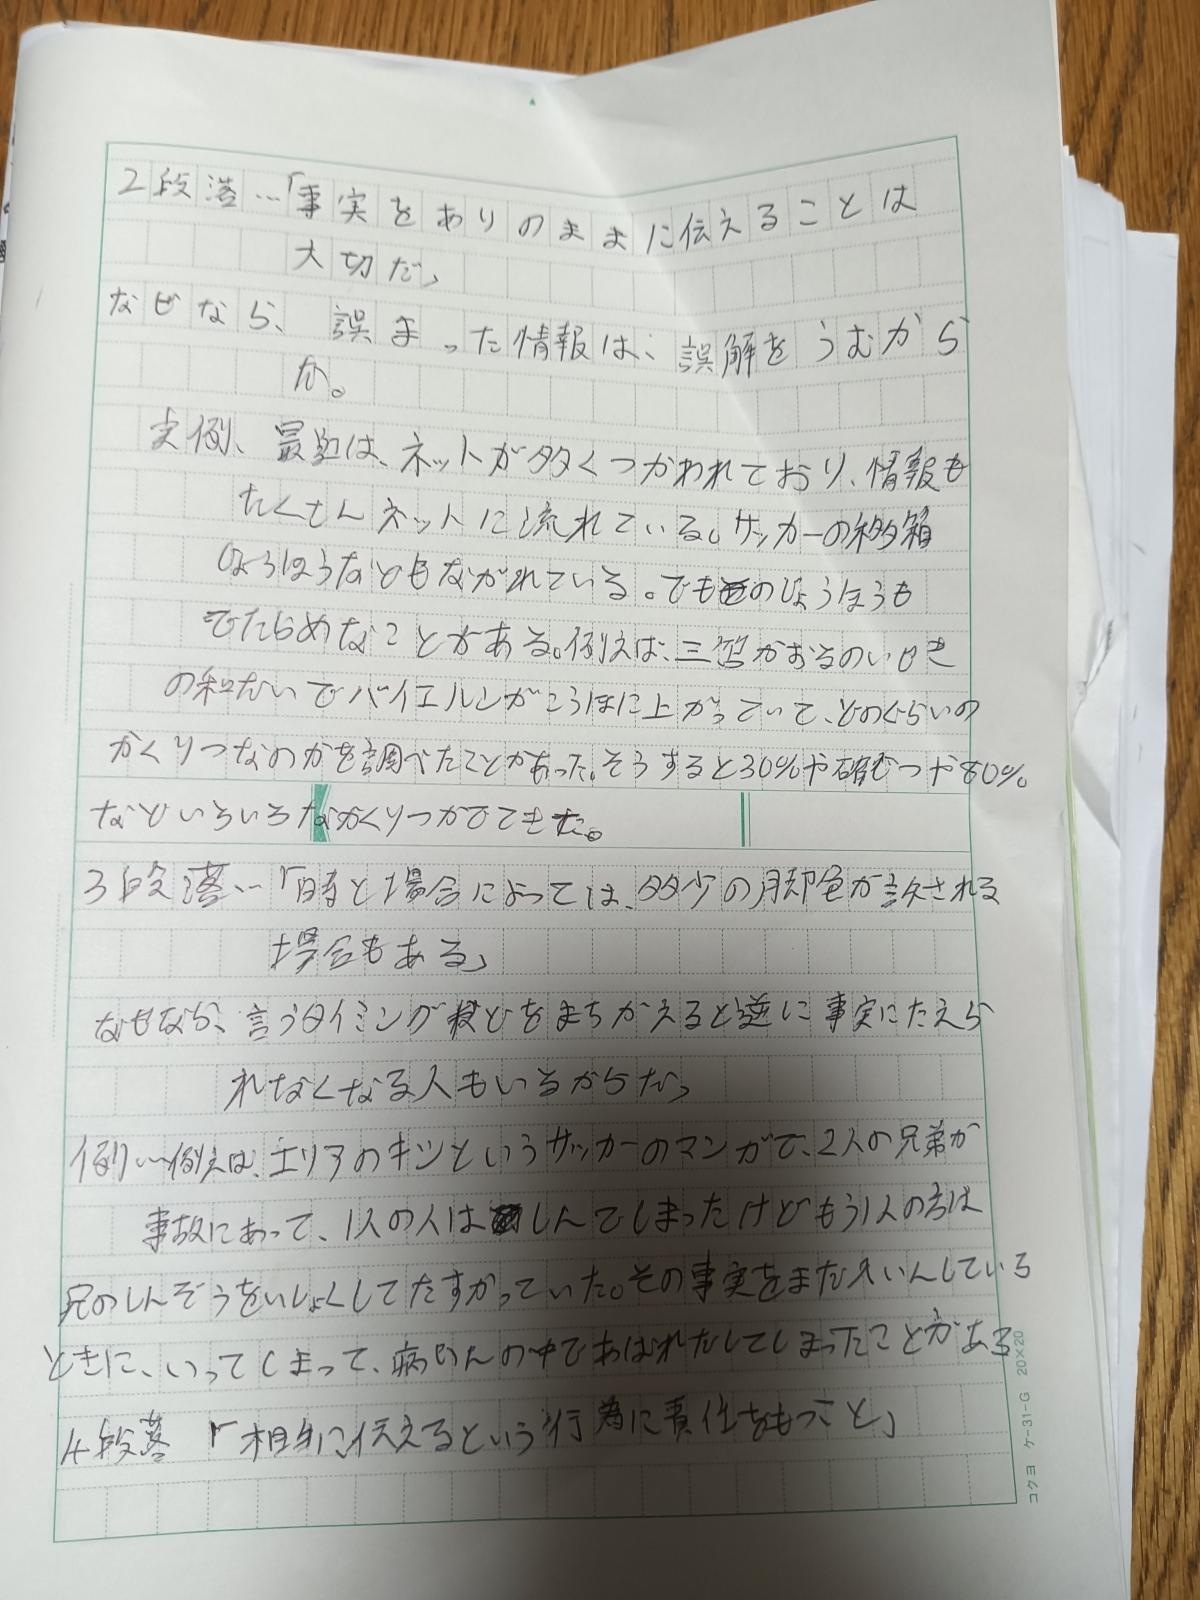 2段落…「事実をありのままに伝えることは
大切だ」
なぜなら、誤まった情報は、誤解をうむから
だ。
実例、最近は、ネットが多くつかわれており、情報も
たくさんネットに流れている。サッカーの移籍
じょうほうなどもながれている。でもそのじょうほうも
でたらめなことがある。例えば、三笘かおるのいせき
の和だいでバイエルンがこうほに上がっていて、どのくらいの
かくりつなのかを調べたことがあった。そうすると30%や確りつや80%
などいろいろなかくりつがでてきた。
3段落…「時と場合によっては、多少の脚色が許される
場合もある」
なぜなら、言うタイミングなどをまちがえると逆に事実にたえら
れなくなる人もいるからだ。
例…例えば、エリアのキシというサッカーのマンガで、2人の兄弟が
事故にあって、1人の人はしんでしまったけどもう1人の方は
兄のしんぞうをいしょくしてたすかっていた。その事実をまだ入いんしている
ときに、いってしまって、病いんの中であばれだしてしまったことがある
4段落 「相手に伝えるという行為に責任をもつこと」
コクヨ ケ-31-G 20×20